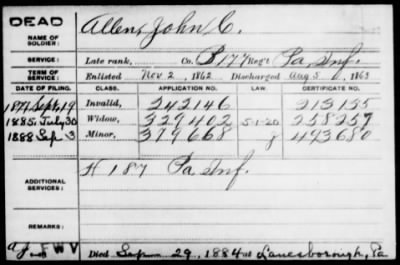 DEAD
NAME OF SOLDIER: Allen, John C.
SERVICE: Late rank, Co. B 177 Reg't Pa. Inf.
TERM OF SERVICE: Enlisted Nov 2, 1862 Discharged Aug 5, 1863
DATE OF FILING. CLASS. APPLICATION NO. LAW. CERTIFICATE NO.
1879 Sept 19 Invalid, 242146 213155
1885. July 30 Widow, 329402 S-1-20 258257
1888 Sep 3 Minor, 379668 493680
ADDITIONAL SERVICES: H 187 Pa Inf.
REMARKS:
Died Sep 29, 1884 at Lanesborough, Pa